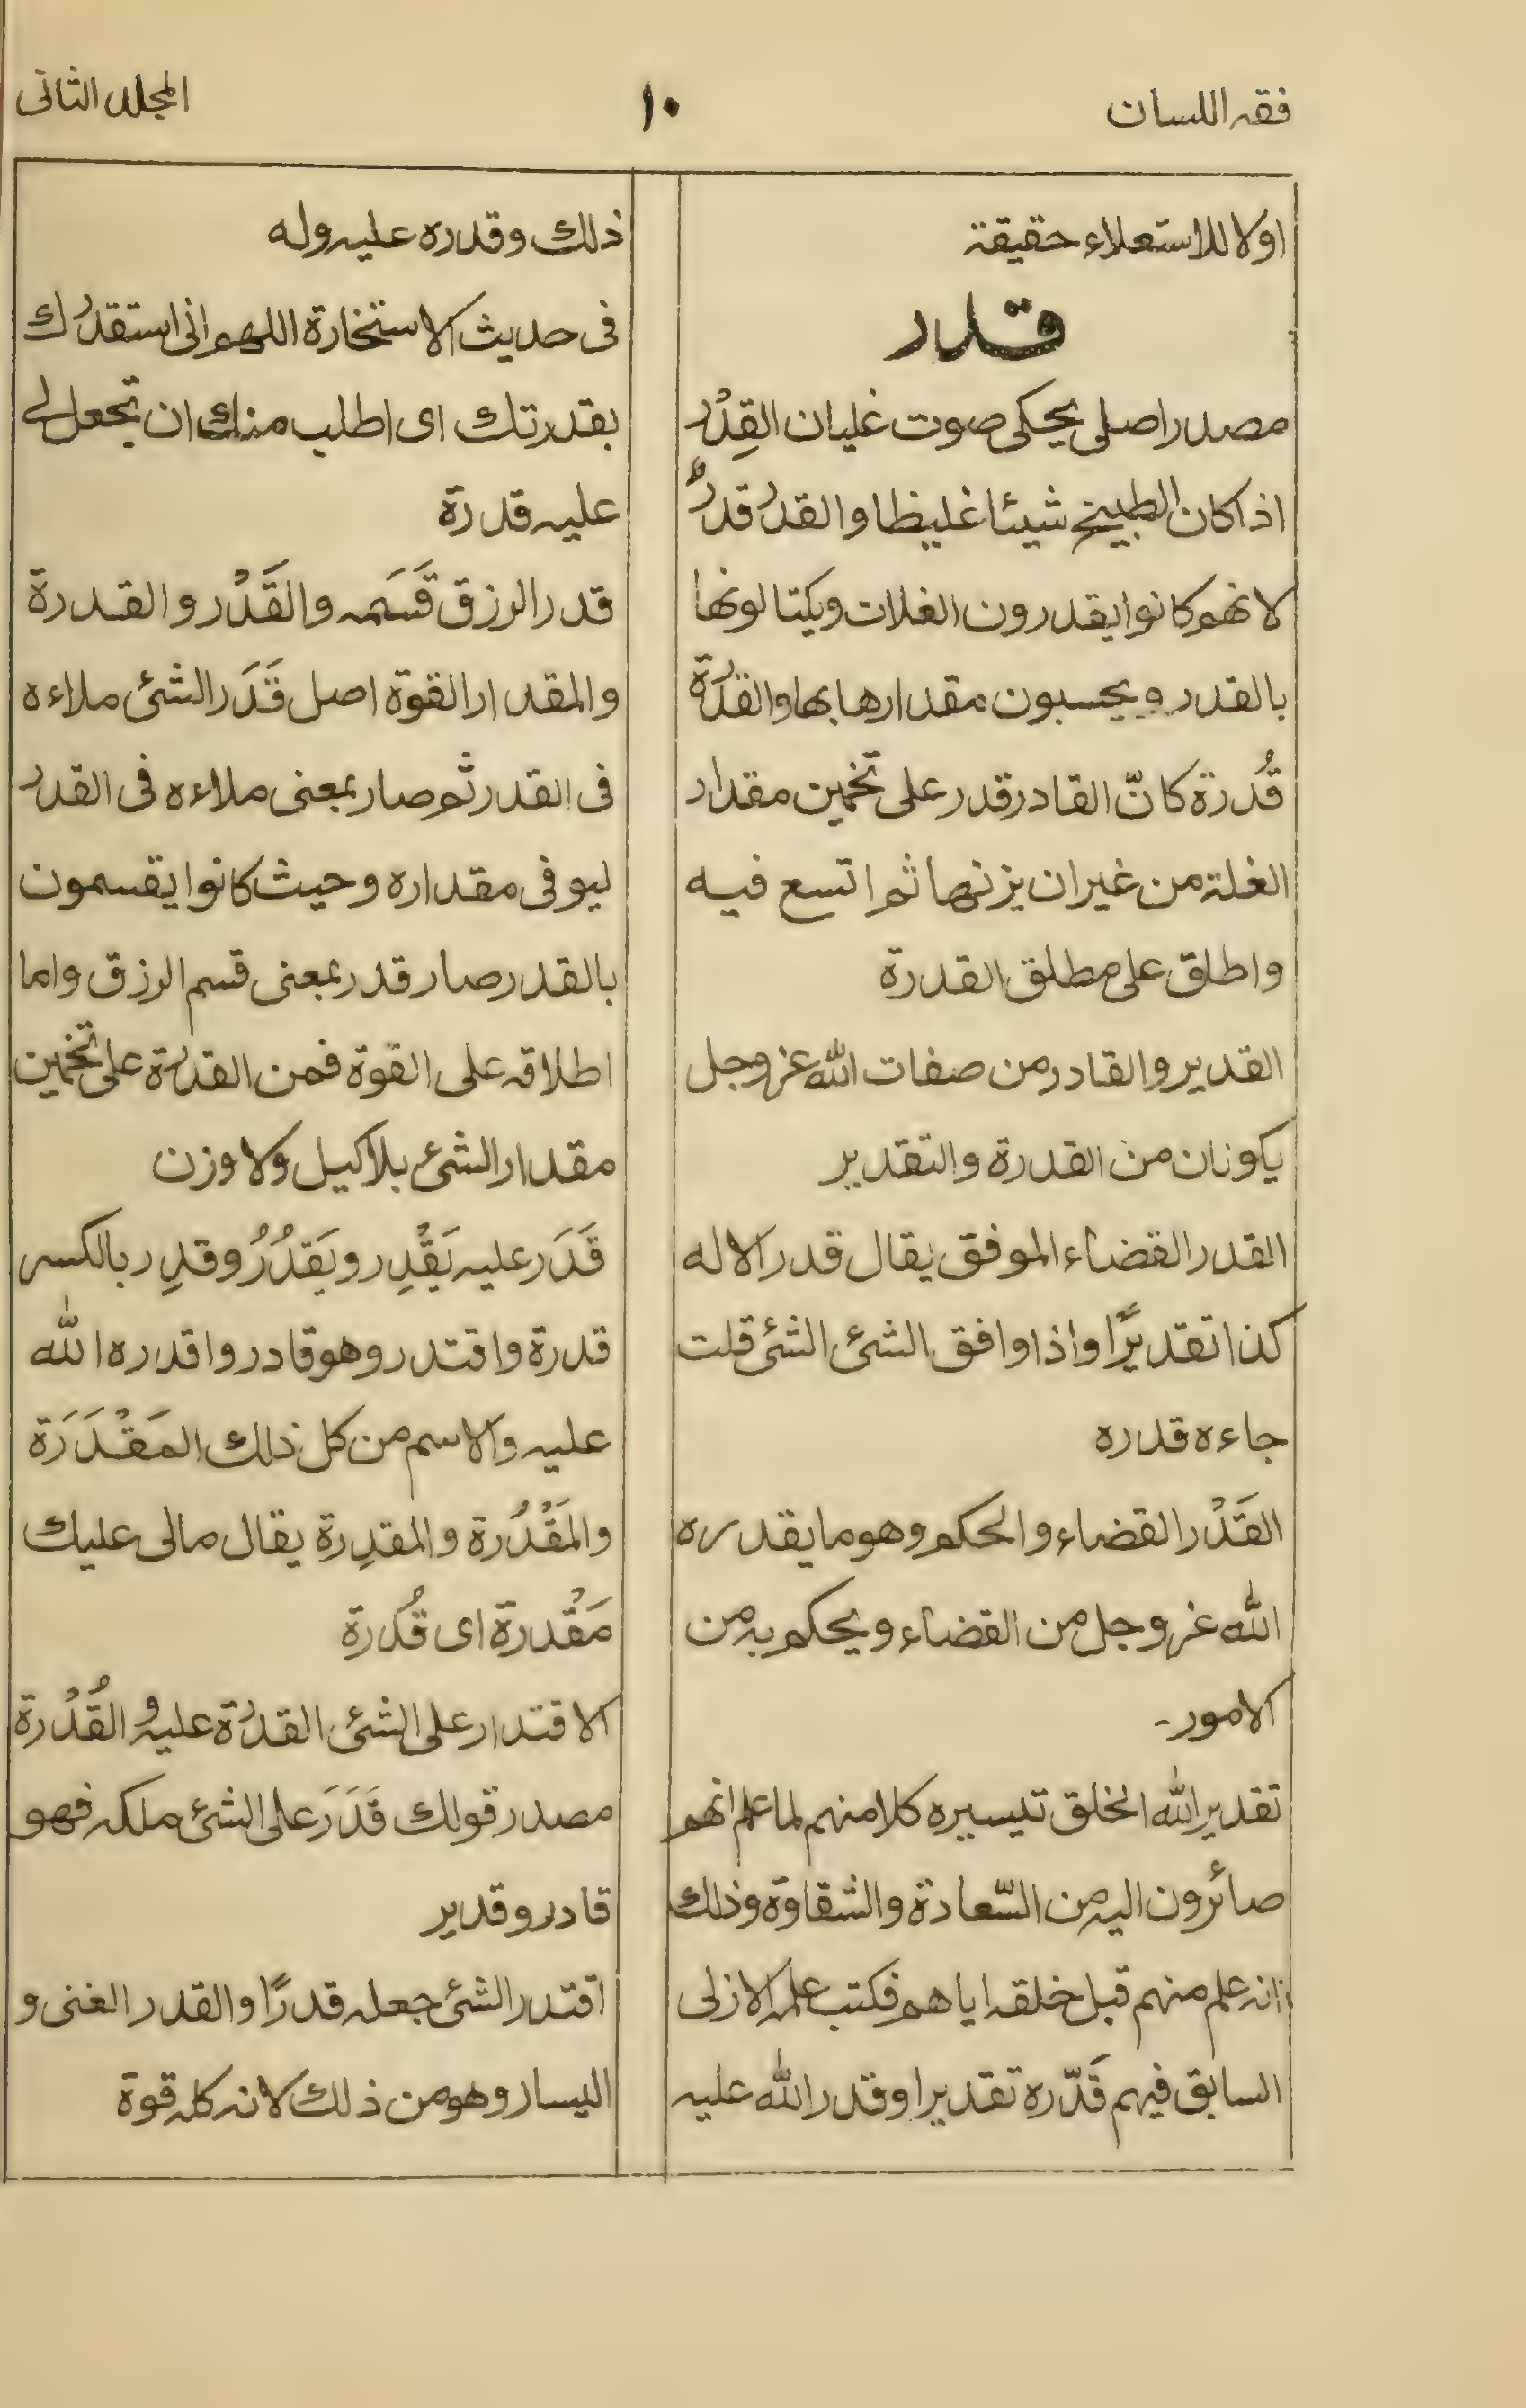 فقہ اللسان
١٠
المجلد الثانی
اولا للاستعلاء حقیقۃ
قدر
مصدر اصلی یحکی صوت غلیان القِدْر
اذا کان الطبیخ شیئا غلیظا والقدر قدرٌ
لانھم کانوا یقدرون الغلات ویکتالونھا
بالقدر ویحسبون مقدارھا بھا والقدرة
قُدرة کانّ القادر قدر علی تخمین مقدار
الغلۃ من غیر ان یزنھا ثم اتسع فیہ
واطلق علی مطلق القدرة
القدیر والقادر من صفات اللّٰہ عز وجل
یکونان من القدرة والتقدیر
القدر القضاء الموفق یقال قدر الالہ
کذا تقدیرًا واذا وافق الشئ الشئ قلت
جاءہ قدرہ
القَدْر القضاء والحکم وھو ما یقدرہ
اللّٰہ عز وجل من القضاء ویحکم بہ من
الامور۔
تقدیر اللّٰہ الخلق تیسیرہ کلا منہم لما علم انھم
صائرون الیہ من السّعادة والشقاوة وذلك
انہ علم منہم قبل خلقہ ایاھم فکتب علمہ الازلی
السابق فیہم قَدّرہ تقدیرا وقدر اللّٰہ علیہ
ذلك وقدرہ علیہ ولہ
فی حدیث الاستخارة اللھم انی استقدرُك
بقدرتك ای اطلب منك ان تجعل لی
علیہ قدرة
قدر الرزق قَسَمہ والقَدْر والقدرة
والمقدار القوة اصل قَدَر الشئ ملاءہ
فی القدر ثم صار بمعنی ملاءہ فی القدر
لیوفی مقدارہ وحیث کانوا یقسمون
بالقدر صار قدر بمعنی قسم الرزق واما
اطلاقہ علی القوة فمن القدرة علی تخمین
مقدار الشئ بلا کیل ولا وزن
قَدَر علیہ یَقْدِر ویَقدُرُ وقدِر بالکسر
قدرة واقتدر وھو قادر واقدرہ اللّٰہ
علیہ والاسم من کل ذلك المَقْدَرَة
والمَقْدُرة والمقدِرة یقال مالی علیك
مَقْدرة ای قُدرة
الاقتدار علی الشئ القدرة علیہ والقُدْرة
مصدر قولك قَدَرَ علی الشئ ملکہ فھو
قادر وقدیر
اقتدر الشئ جعلہ قدرًا والقدر الغنی و
الیسار وھو من ذلك لانہ کلہ قوة